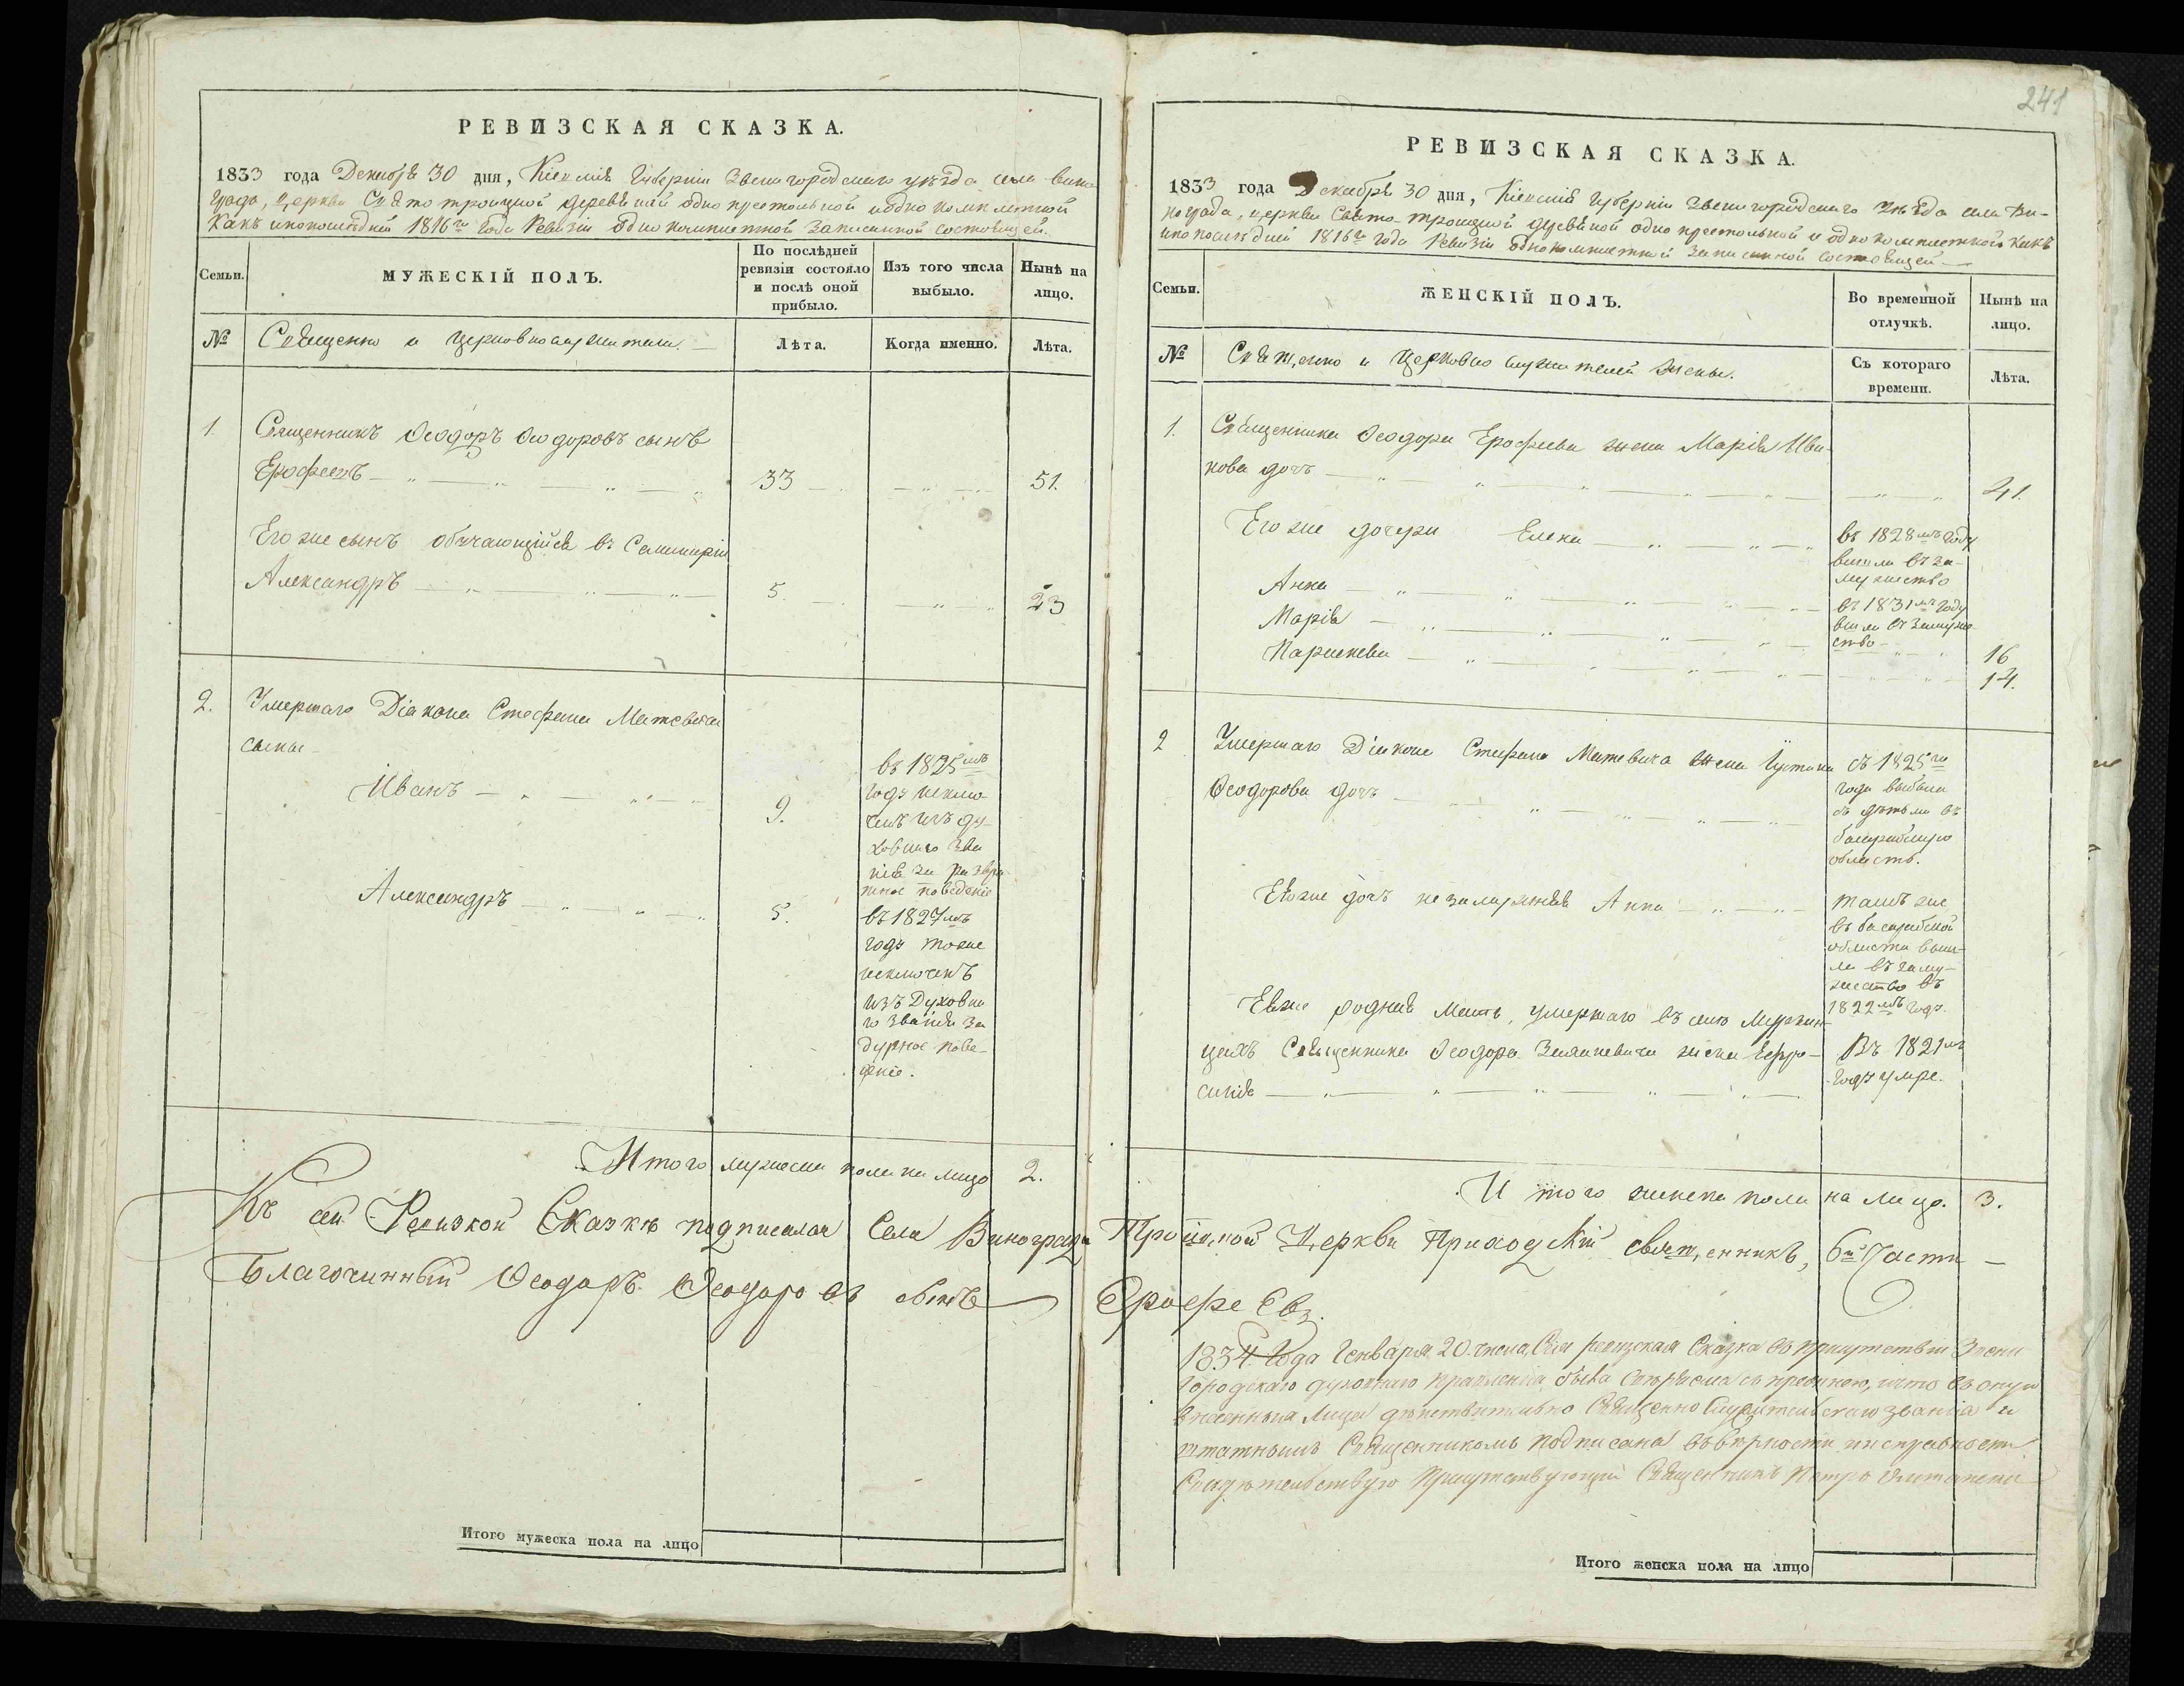 РЕВИЗСКАЯ СКАЗКА.
1833 года Декабрѣ 30 дня, Кіевскія Губерніи Звенигородскаго уѣзда села Вино
града, Церкви Свято троицкой деревяной одно престольной и одно комплетной
какъ и по последней 1816го Года Ревизіи одно комплетной Записанной состоящей.
Семьи.
МУЖЕСКІЙ ПОЛЪ.
По послѣдней
ревизіи состояло
и послѣ оной
прибыло.
Изъ того числа
выбыло.
Нынѣ на
лицо.
№
Священно и Церковнослужители.
Лѣта.
Когда именно.
Лѣта.
1. Священникъ Ѳеодоръ Ѳеодоровъ сынъ
Ерофеевъ 33 51.
Его же сынъ обучающійся въ Семинаріи
Александръ 5. 23
2. Умершаго Діакона Стефана Матевича
сыны
Иванъ 9.
въ 1825мъ
году исклю-
ченъ изъ ду-
ховнаго зва
нія за развра-
тное поведеніе
Александръ 5.
въ 1827мъ
году тоже
исключенъ
изъ Духовна
го званія за
дурное пове-
деніе.
Итого мужеска пола на лицо 2.
РЕВИЗСКАЯ СКАЗКА.
241
1833 года Декабря 30 дня, Кіевскія Губерніи Звенигородскаго Уѣзда села Ви-
нограда, церкви Свято-троицкой деревяной одно престольной и одно комплетной какъ
и по последней 1816го года Ревизіи одно комплетной записанной состоящей
Семьи.
ЖЕНСКІЙ ПОЛЪ.
Во временной
отлучкѣ.
Нынѣ на
лицо.
№
Священно и Церковно служителей Жены.
Съ котораго
времени.
Лѣта.
1. Священника Ѳеодора Ерофеева жена Марія Ива-
нова дочь 41.
Его же дочери Елена
въ 1828мъ году
вышла въ за-
мужество
Анна
въ 1831мъ году
вышла въ замуже
ство
Марія 16
Параскева 14.
2 Умершаго Діакона Стефана Матевича жена Іустина
Ѳеодорова дочь
съ 1825го
года выбыла
съ дѣтьми въ
басарабскую
область.
Ея же дочь незамужняя Анна
тамъ же
въ басарабской
области выш-
ла въ заму-
жество въ
1822мъ году.
Ея же родная мать, умершаго въ селе
цахъ Священника Ѳеодора жена Ефро-
синія
Въ 1821мъ
году умре.
Итого женска пола на лицо. 3.
Къ сей Ревизкой Сказкѣ подписался Села Винограда Троицкой Церкви Приходскій священникъ, 6й Части
Благочинный Ѳеодоръ Ѳеодоровъ сынъ Ерофеевъ.
1834 Года Генваря 20. числа, Сія ревизская Сказка въ присутствіи Звени
городскаго духовнаго правленія была съ прежнею, и что въ оную
внесенныя Лица дѣйствительно Священно Служительскаго званія и
штатнымъ Священникомъ подписана въ вѣрности и исправности
Свидѣтельствую Присутствующій Священникъ Петръ
Итого мужеска пола на лицо
Итого женска пола на лицо